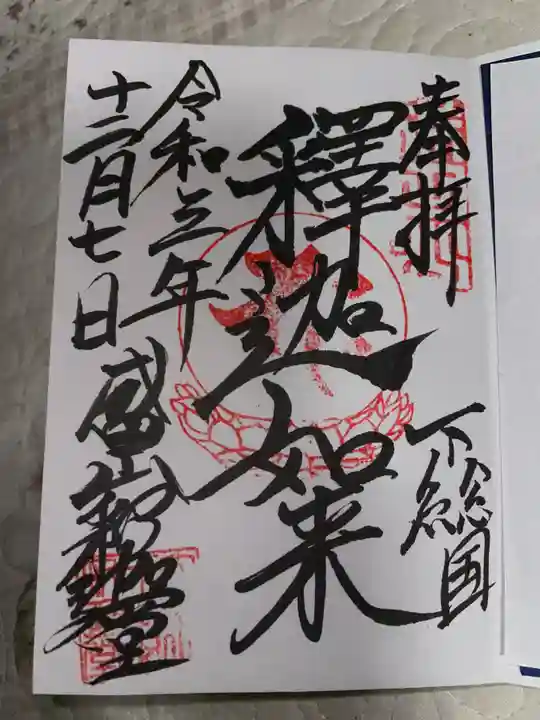 奉拝
下総国
釋迦如来
令和三年
十二月七日